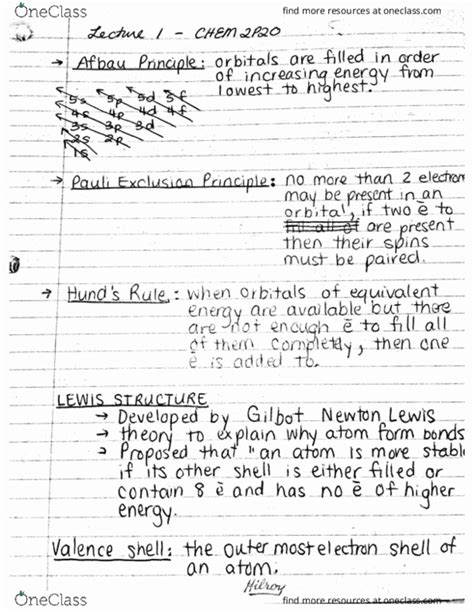 OneClass
find more resources at oneclass.com
Lecture 1 - CHEM 2P20
→ Afbau Principle: orbitals are filled in order
of increasing energy from
lowest to highest.
5s 5p 5d 5f
4s 4p 4d 4f
3s 3p 3d
2s 2p
1s
→ Pauli Exclusion Principle: no more than 2 electron
may be present in an
orbital, if two ē to
fill all of are present
then their spins
must be paired.
→ Hund's Rule: when orbitals of equivalent
energy are available but there
are not enough ē to fill all
of them completely, then one
ē is added to.
LEWIS STRUCTURE
→ Developed by Gilbot Newton Lewis
→ theory to explain why atom form bonds
→ Proposed that "an atom is more stabl
if its other shell is either filled or
contain 8 ē and has no ē of higher
energy.
Valence shell: the outermost electron shell of
an atom.
Hilroy
OneClass
find more resources at oneclass.com